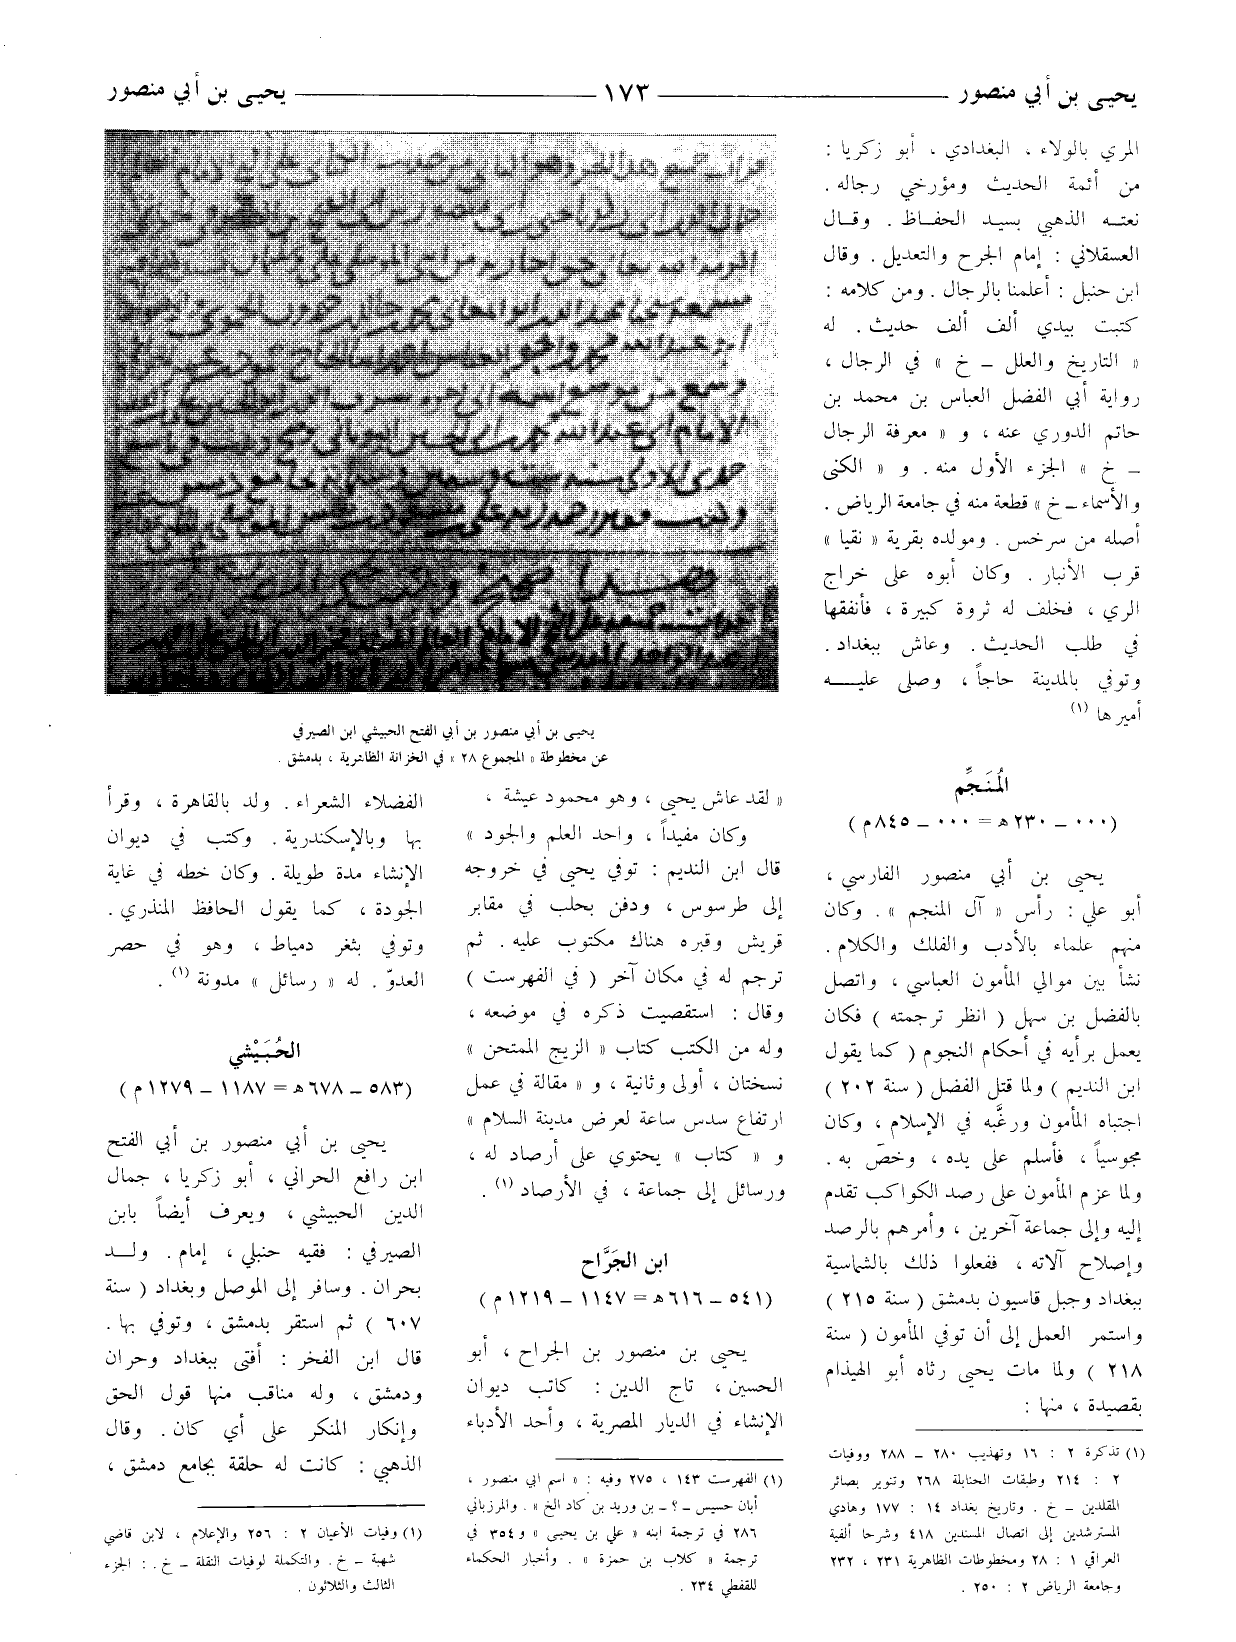 يحيى بن أبي منصور ــــــ ١٧٣ ــــــ يحيى بن أبي منصور
المري بالولاء ، البغدادي ، أبو زكريا :
من أئمة الحديث ومؤرخي رجاله .
نعتـه الذهبي بسيد الحفـاظ . وقـال
العسقلاني : إمام الجرح والتعديل . وقال
ابن حنبل : أعلمنا بالرجال . ومن كلامه :
كتبت بيدي ألف ألف حديث . له
« التاريخ والعلل ــ خ » في الرجال ،
رواية أبي الفضل العباس بن محمد بن
حاتم الدوري عنه ، و « معرفة الرجال
ــ خ » الجزء الأول منه . و « الكنى
والأسماء ــ خ » قطعة منه في جامعة الرياض .
أصله من سرخس . ومولده بقرية « نقيا »
قرب الأنبار . وكان أبوه على خراج
الري ، فخلف له ثروة كبيرة ، فأنفقها
في طلب الحديث . وعاش ببغداد .
وتوفي بالمدينة حاجاً ، وصلى عليـــه
أميرها (١)
المُنَجِّم
(٠٠٠ ــ ٢٣٠ ه = ٠٠٠ ــ ٨٤٥ م)
يحيى بن أبي منصور الفارسي ،
أبو علي : رأس « آل المنجم » . وكان
منهم علماء بالأدب والفلك والكلام .
نشأ بين موالي المأمون العباسي ، واتصل
بالفضل بن سهل ( انظر ترجمته ) فكان
يعمل برأيه في أحكام النجوم ( كما يقول
ابن النديم ) ولما قتل الفضل ( سنة ٢٠٢ )
اجتباه المأمون ورغَّبه في الإسلام ، وكان
مجوسياً ، فأسلم على يده ، وخصّ به .
ولما عزم المأمون على رصد الكواكب تقدم
إليه وإلى جماعة آخرين ، وأمرهم بالرصد
وإصلاح آلاته ، ففعلوا ذلك بالشماسية
ببغداد وجبل قاسيون بدمشق ( سنة ٢١٥ )
واستمر العمل إلى أن توفي المأمون ( سنة
٢١٨ ) ولما مات يحيى رثاه أبو الهيذام
بقصيدة ، منها :
(١) تذكرة ٢ : ١٦ وتهذيب ٢٨٠ ــ ٢٨٨ ووفيات
٢ : ٢١٤ وطبقات الحنابلة ٢٦٨ وتنوير بصائر
المقلدين ــ خ . وتاريخ بغداد ١٤ : ١٧٧ وهادي
المسترشدين إلى اتصال المسندين ٤١٨ وشرحا ألفية
العراقي ١ : ٢٨ ومخطوطات الظاهرية ٢٣١ ، ٢٣٢
وجامعة الرياض ٢ : ٢٥٠ .
يحيى بن أبي منصور بن أبي الفتح الحبيشي ابن الصيرفي
عن مخطوطة « المجموع ٢٨ » في الخزانة الظاهرية ، بدمشق .
« لقد عاش يحيى ، وهو محمود عيشة ،
وكان مفيداً ، واحد العلم والجود »
قال ابن النديم : توفي يحيى في خروجه
إلى طرسوس ، ودفن بحلب في مقابر
قريش وقبره هناك مكتوب عليه . ثم
ترجم له في مكان آخر ( في الفهرست )
وقال : استقصيت ذكره في موضعه ،
وله من الكتب كتاب « الزيج الممتحن »
نسختان ، أولى وثانية ، و « مقالة في عمل
ارتفاع سدس ساعة لعرض مدينة السلام »
و « كتاب » يحتوي على أرصاد له ،
ورسائل إلى جماعة ، في الأرصاد (١) .
ابن الجَرَّاح
(٥٤١ ــ ٦١٦ ه = ١١٤٧ ــ ١٢١٩ م)
يحيى بن منصور بن الجراح ، أبو
الحسين ، تاج الدين : كاتب ديوان
الإنشاء في الديار المصرية ، وأحد الأدباء
(١) الفهرست ١٤٣ ، ٢٧٥ وفيه : « اسم ابي منصور ،
أبان حسيس ــ ؟ ــ بن وريد بن كاد الخ » . والمرزباني
٢٨٦ في ترجمة ابنه « علي بن يحيى » و ٣٥٤ في
ترجمة « كلاب بن حمزة » . وأخبار الحكماء
للقفطي ٢٣٤ .
الفضلاء الشعراء . ولد بالقاهرة ، وقرأ
بها وبالإسكندرية . وكتب في ديوان
الإنشاء مدة طويلة . وكان خطه في غاية
الجودة ، كما يقول الحافظ المنذري .
وتوفي بثغر دمياط ، وهو في حصر
العدوّ . له « رسائل » مدونة (١) .
الحُبَيْشي
(٥٨٣ ــ ٦٧٨ ه = ١١٨٧ ــ ١٢٧٩ م)
يحيى بن أبي منصور بن أبي الفتح
ابن رافع الحراني ، أبو زكريا ، جمال
الدين الحبيشي ، ويعرف أيضاً بابن
الصيرفي : فقيه حنبلي ، إمام . ولـــد
بحران . وسافر إلى الموصل وبغداد ( سنة
٦٠٧ ) ثم استقر بدمشق ، وتوفي بها .
قال ابن الفخر : أفتى ببغداد وحران
ودمشق ، وله مناقب منها قول الحق
وإنكار المنكر على أي كان . وقال
الذهبي : كانت له حلقة بجامع دمشق ،
(١) وفيات الأعيان ٢ : ٢٥٦ والإعلام ، لابن قاضي
شهبة ــ خ . والتكملة لوفيات النقلة ــ خ . : الجزء
الثالث والثلاثون .